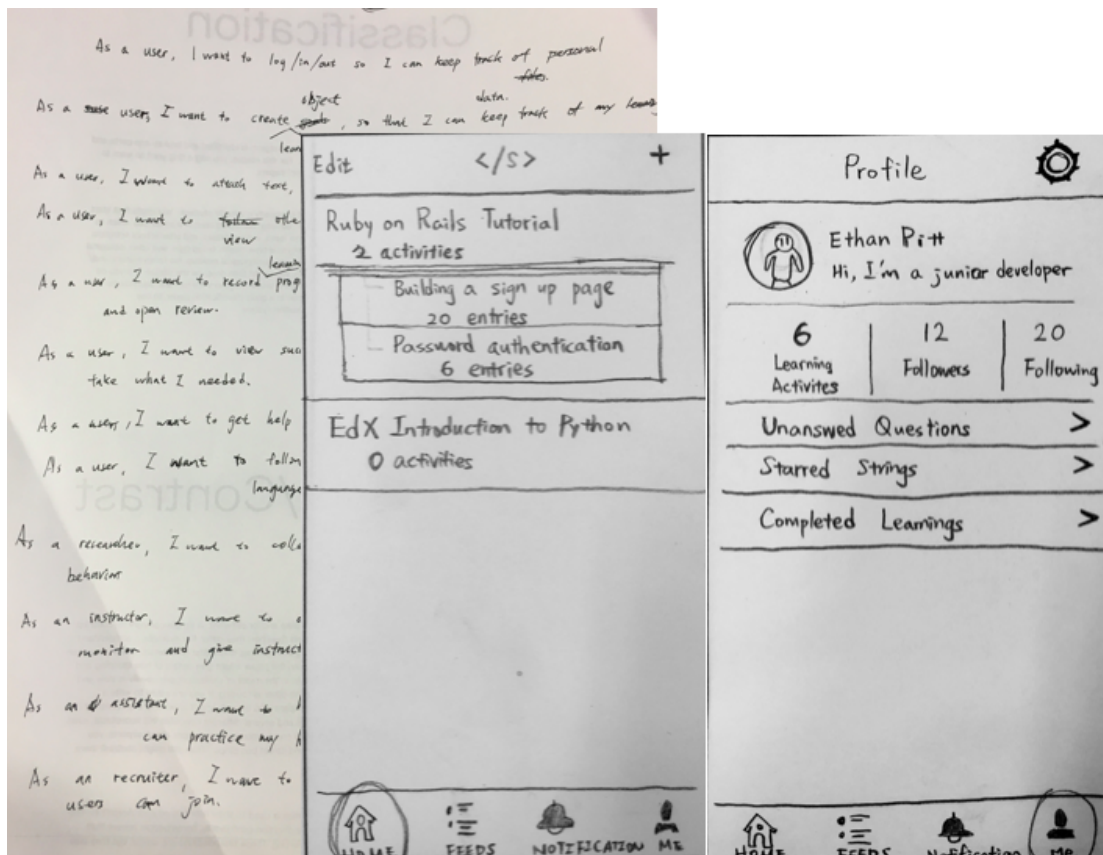 Classification
As a user, I want to log/in/out so I can keep track of personal
files.
object data.
As a user, I want to create goals, so that I can keep track of my
learn
As a user, I want to attach text,
As a user, I want to follow othe
view
As a user, I want to record prog
and open review.
As a user, I want to view suc
take what I needed.
As a user, I want to get help
As a user, I want to follow
language
/Contrast
As a researcher, I want to colla
behavior
As an instructor, I want to
monitor and give instruct
As an assistant, I want to
can practice my
As an recruiter, I want to
users can join.
Edit </S> +
Ruby on Rails Tutorial
2 activities
Building a sign up page
20 entries
Password authentication
6 entries
EdX Introduction to Python
0 activities
HOME FEEDS NOTIFICATION ME
Profile
Ethan Pitt
Hi, I'm a junior developer
6 12 20
Learning Followers Following
Activites
Unanswed Questions >
Starred Strings >
Completed Learnings >
HOME FEEDS Notification ME